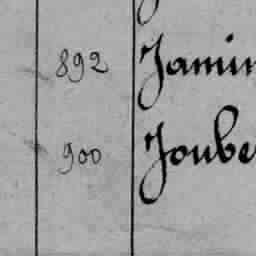 892 Jamin
900 Joube